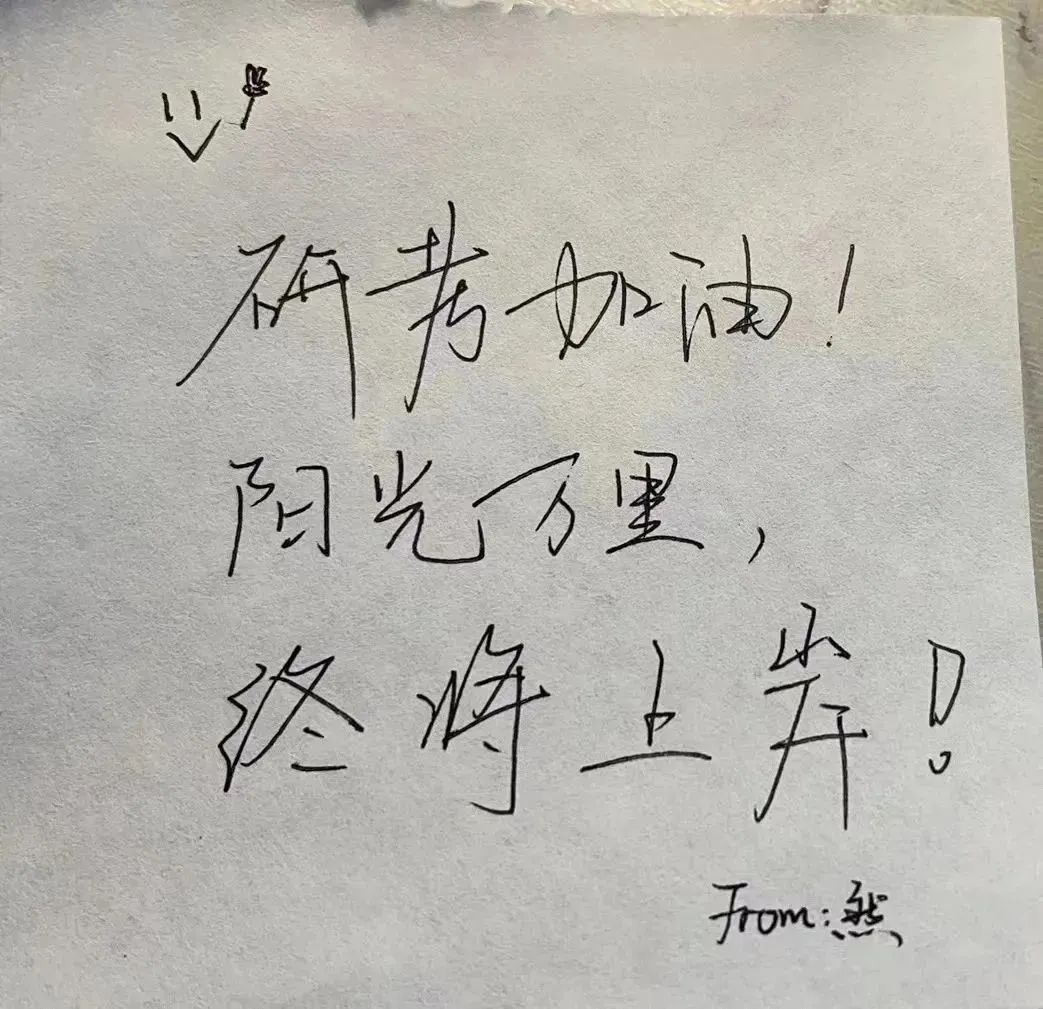 研考加油!
阳光万里,
终将上岸!
From:然